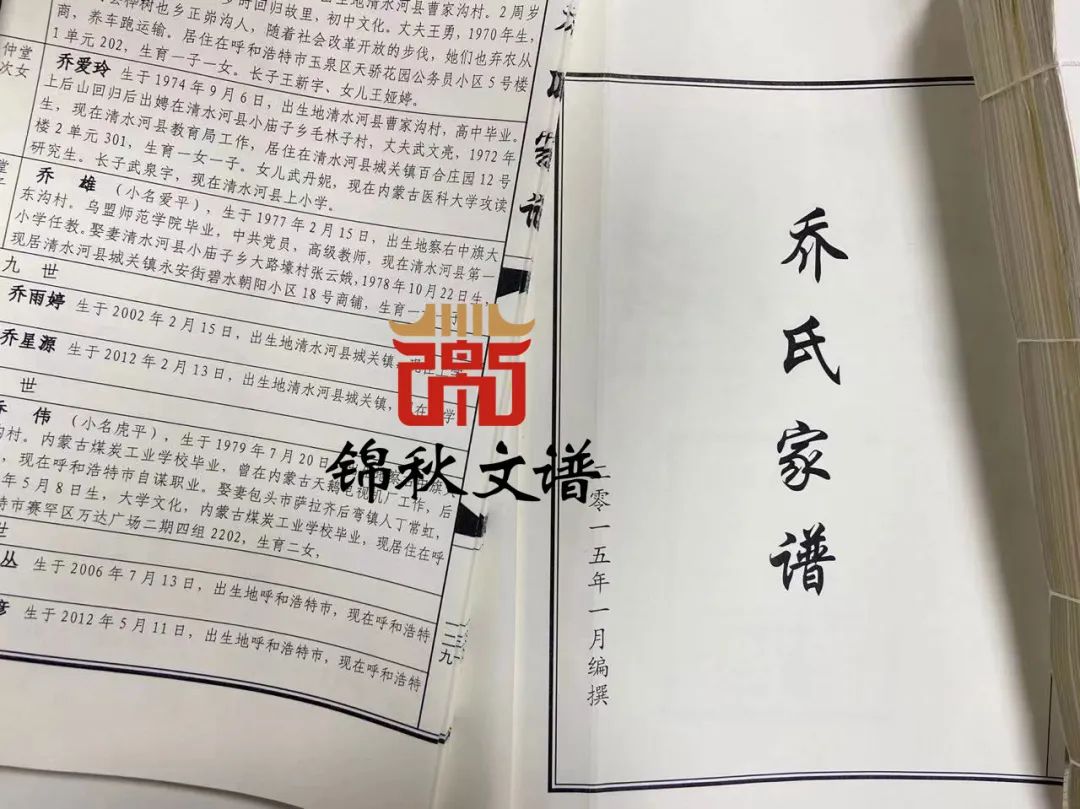 时回归故里，初中文化。丈夫王勇，1970年生，
商，养车跑运输。居住在呼和浩特市玉泉区天骄花园公务员小区5号楼
1单元202，生育一子一女。长子王新宇、女儿王娅婷。
仲堂
次女
乔爱玲 生于1974年9月6日，出生地清水河县曹家沟村，高中毕业。
上后山回归后出娉在清水河县小庙子乡毛林子村，丈夫武文亮，1972年
生，现在清水河县教育局工作，居住在清水河县城关镇百合庄园12号
楼2单元301，生育一女一子。女儿武丹妮，现在内蒙古医科大学攻读
研究生。长子武泉宇，现在清水河县上小学。
乔 雄（小名爱平），生于1977年2月15日，出生地察右中旗大
东沟村。乌盟师范学院毕业，中共党员，高级教师，现在清水河县第一
小学任教。娶妻清水河县小庙子乡大路壕村张云娥，1978年10月22日生，
现居清水河县城关镇永安街碧水朝阳小区18号商铺，生育一
九 世
乔雨婷 生于2002年2月15日，出生地清水河县城关镇，现在上
乔星源 生于2012年2月13日，出生地清水河县城关镇，
世
乔 伟（小名虎平），生于1979年7月20
沟村。内蒙古煤炭工业学校毕业，曾在内蒙古天鹅电视机厂工作，后
，现在呼和浩特市自谋职业。娶妻包头市萨拉齐后弯镇人丁常虹，
年5月8日生，大学文化，内蒙古煤炭工业学校毕业，现居住在呼
特市赛罕区万达广场二期四组2202，生育二女，
世
丛 生于2006年7月13日，出生地呼和浩特市，现在呼和浩特
彦 生于2012年5月11日，出生地呼和浩特市，现在呼和浩特
锦秋文谱
乔氏家谱
二零一五年一月编撰